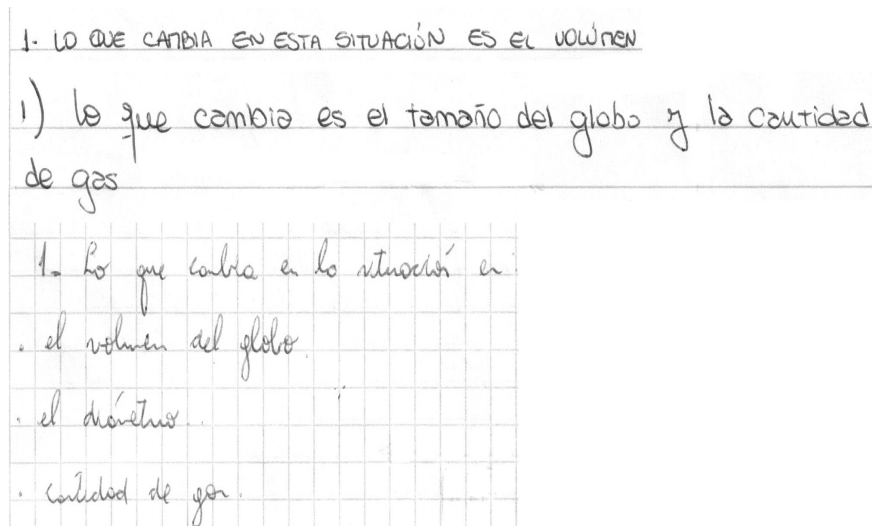 1. LO QUE CAMBIA EN ESTA SITUACIÓN ES EL VOLÚMEN
1) lo que cambia es el tamaño del globo y la cantidad
de gas
1. Lo que cambia en la situación es:
. el volumen del globo.
. el diámetro.
. cantidad de gas.